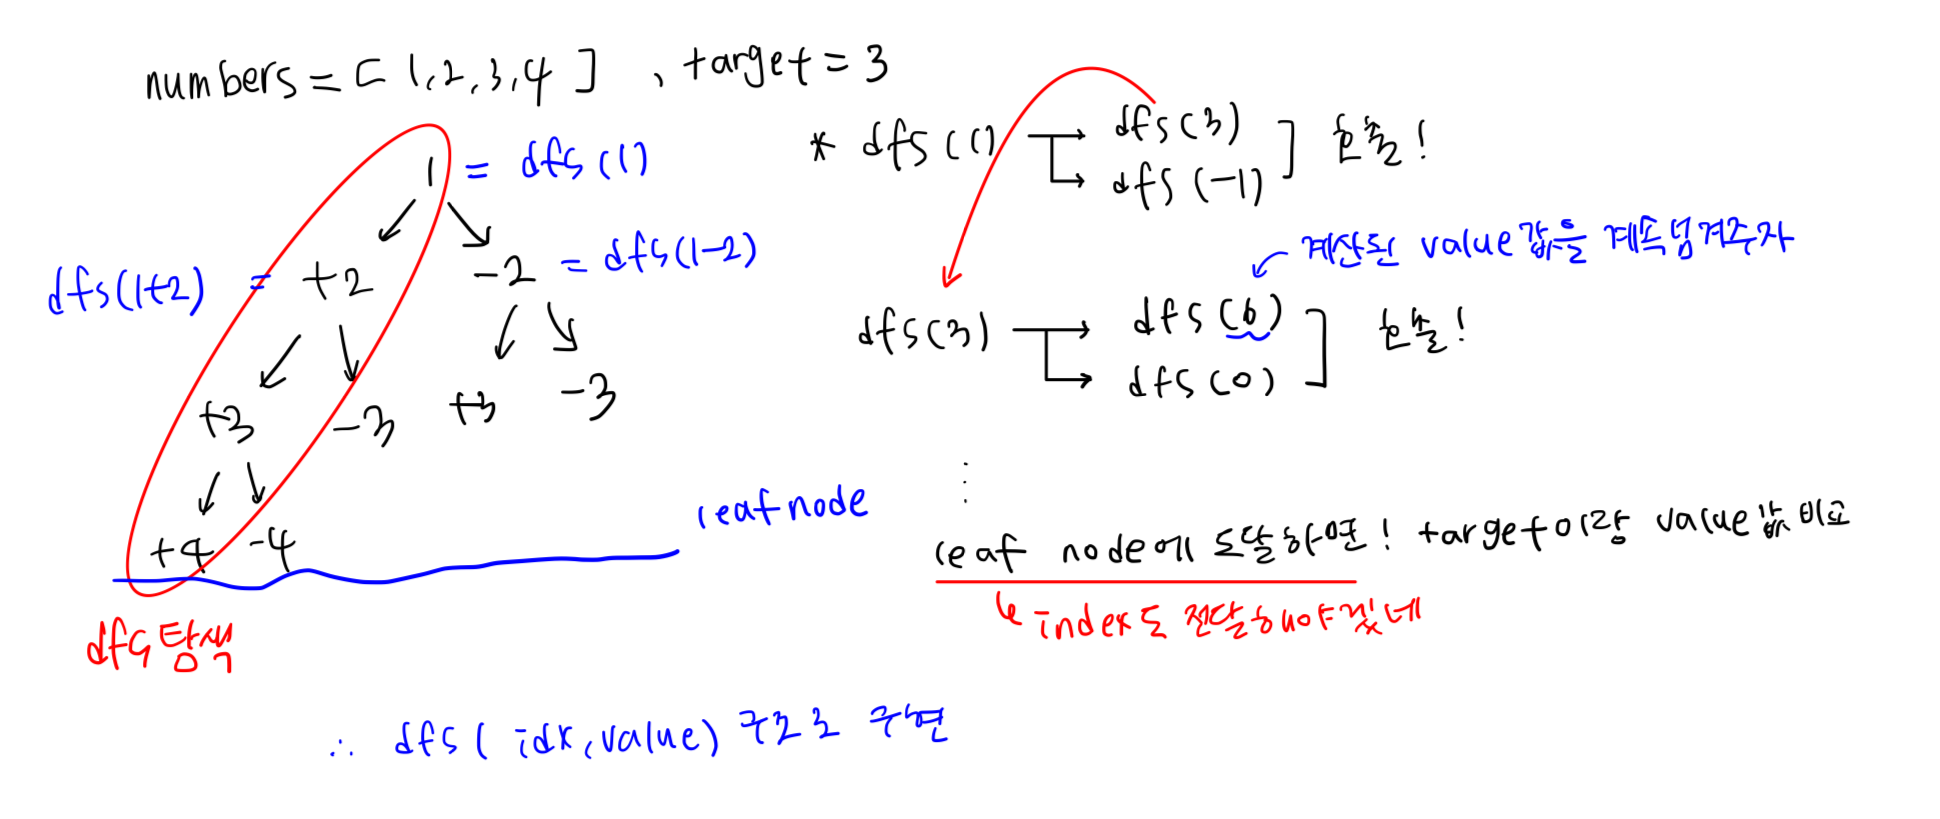 numbers = [ 1, 2, 3, 4 ] , target = 3
1 = dfs (1)
dfs(1+2) = +2
-2 = dfs(1-2)
+3 -3 +3 -3
+4 -4
leaf node
dfs 탐색
* dfs (1) → dfs (3)
→ dfs (-1)
] 호출!
계산된 value 값을 계속 넘겨주자
dfs(3) → dfs (6)
→ dfs (0)
] 호출!
⋮
leaf node에 도달하면! target이랑 value값 비교
↳ index도 전달해야겠네
∴ dfs ( idx, value) 구조로 구현